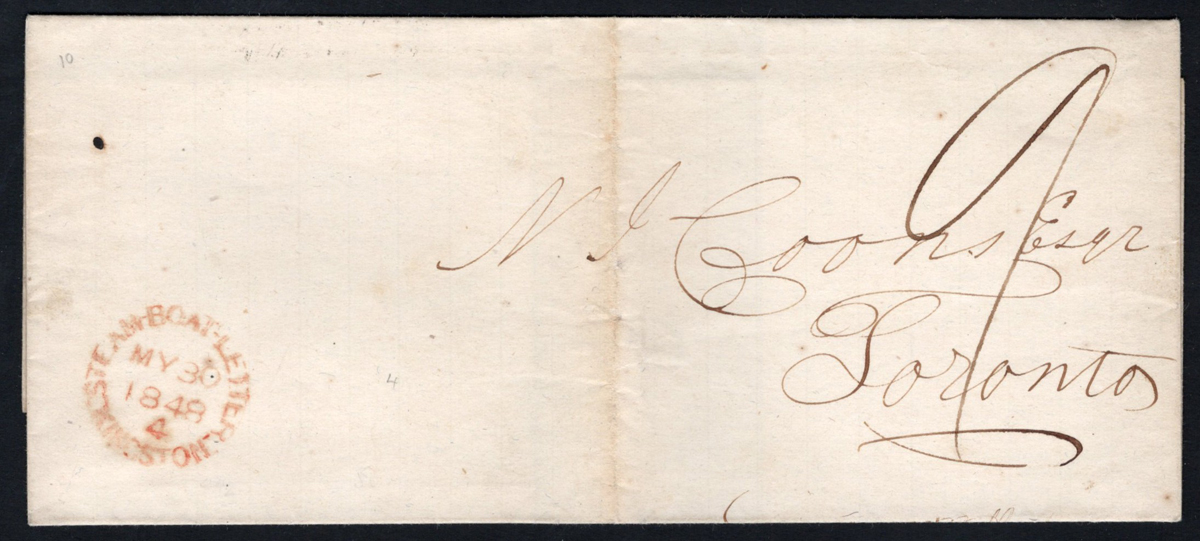 10
9
N J Coons Esqr
Toronto
STEAM-BOAT-LETTER
MY 30
1848
4
4